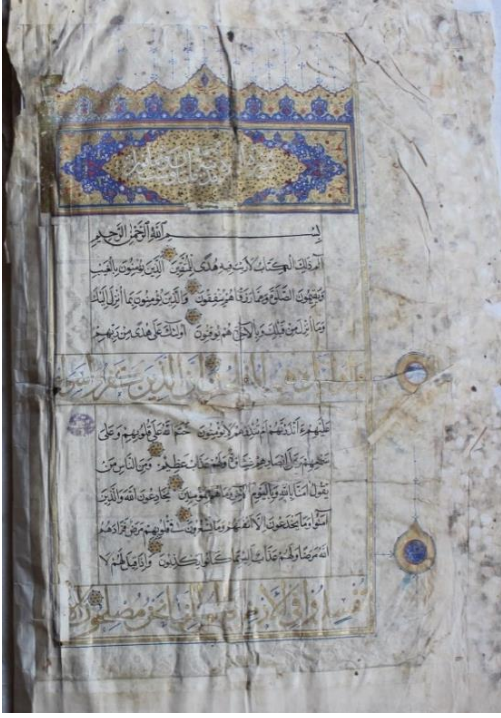 بِسْمِ اللهِ الرَّحْمٰنِ الرَّحِيمِ
الم ذلك الكتاب لا ريب فيه هدى للمتقين الذين يؤمنون بالغيب
ويقيمون الصلوة ومما رزقناهم ينفقون والذين يؤمنون بما انزل اليك
وما انزل من قبلك وبالاخرة هم يوقنون اولئك على هدى من ربهم
ان الذين كفروا سواء
عليهم ءانذرتهم ام لم تنذرهم لا يؤمنون ختم الله على قلوبهم وعلى
سمعهم وعلى ابصارهم غشاوة ولهم عذاب عظيم ومن الناس من
يقول امنا بالله وباليوم الاخر وما هم بمؤمنين يخادعون الله والذين
آمنوا وما يخدعون الا انفسهم وما يشعرون في قلوبهم مرض فزادهم
الله مرضا ولهم عذاب اليم بما كانوا يكذبون واذا قيل لهم لا
تفسدوا في الارض قالوا انما نحن مصلحون الا